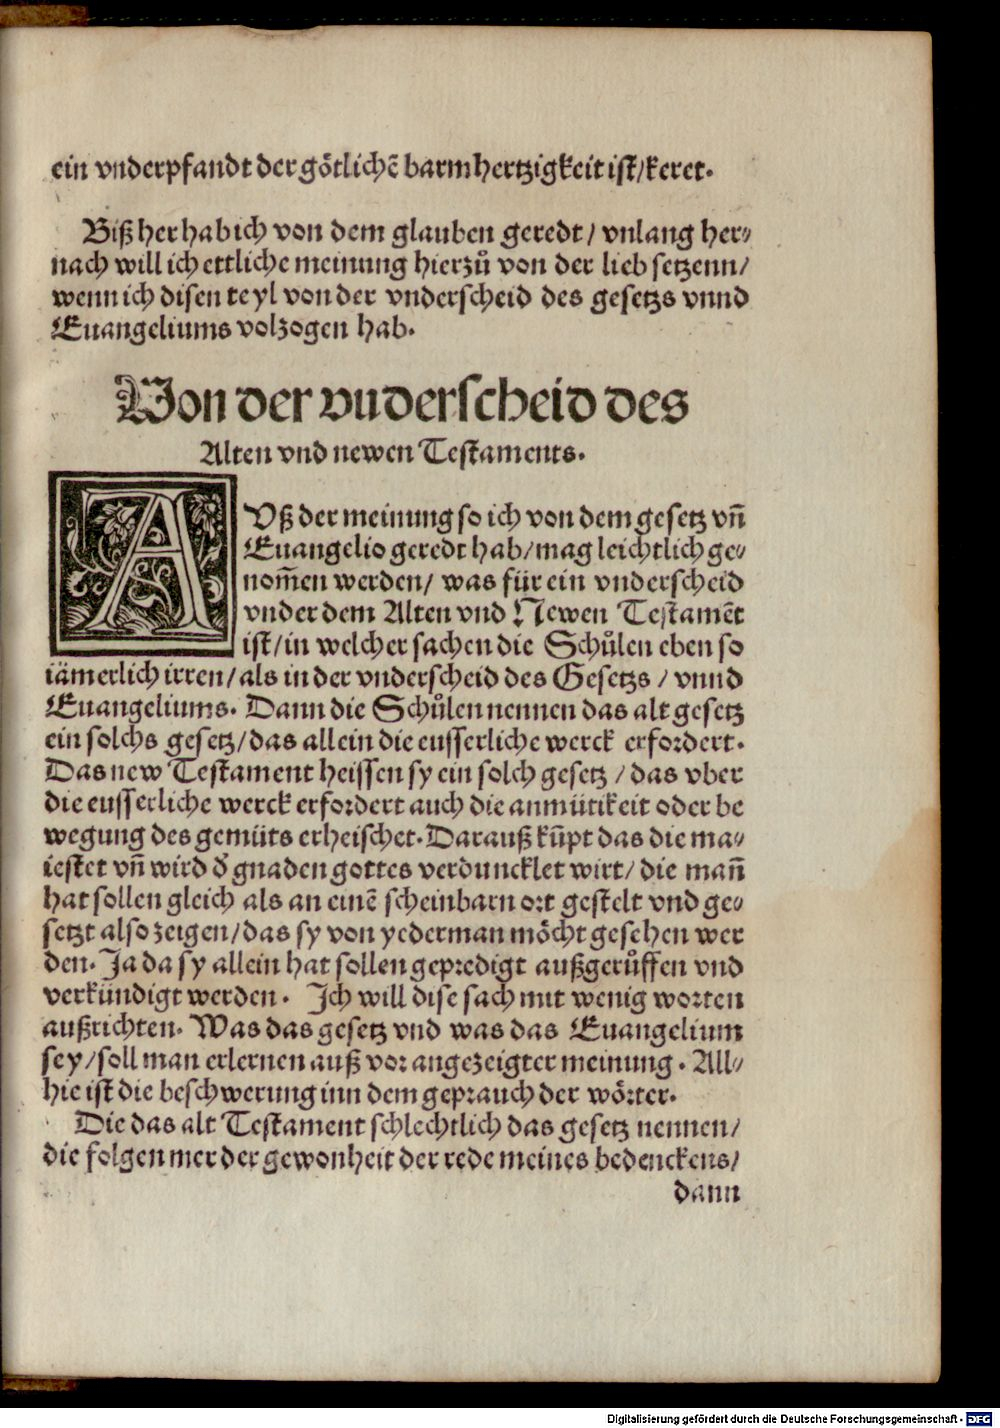 ein vnderpfandt der götlichē barmhertzigkeit ist/keret.
Biß her hab ich von dem glauben geredt/ vnlang her⸗
nach will ich ettliche meinung hierzů von der lieb setzenn/
wenn ich disen teyl von der vnderscheid des gesetzs vnnd
Euangeliums volzogen hab.
Von der vuderscheid des
Alten vnd newen Testaments.
AVß der meinung so ich von dem gesetz vñ
Euangelio geredt hab/mag leichtlich ge⸗
nom̄en werden/ was für ein vnderscheid
vnder dem Alten vnd Newen Testamēt
ist/in welcher sachen die Schůlen eben so
iämerlich irren/als in der vnderscheid des Gesetzs / vnnd
Euangeliums. Dann die Schůlen nennen das alt gesetz
ein solchs gesetz/das allein die eusserliche werck erfordert.
Das new Testament heissen sy ein solch gesetz / das vber
die eusserliche werck erfordert auch die anmütikeit oder be
wegung des gemüts erheischet. Darauß kūpt das die ma⸗
iestet vñ wird d̓ gnaden gottes verduncklet wirt/ die mañ
hat sollen gleich als an einē scheinbarn ort gestelt vnd ge⸗
setzt also zeigen/das sy von yederman möcht gesehen wer
den. Ja da sy allein hat sollen gepredigt außgerůffen vnd
verkündigt werden. Ich will dise sach mit wenig worten
außrichten. Was das gesetz vnd was das Euangelium
sey/soll man erlernen auß vor angezeigter meinung. All⸗
hie ist die beschwerung inn dem geprauch der wörter.
Die das alt Testament schlechtlich das gesetz nennen/
die folgen mer der gewonheit der rede meines bedenckens/
dann
Digitalisierung gefördert durch die Deutsche Forschungsgemeinschaft - DFG